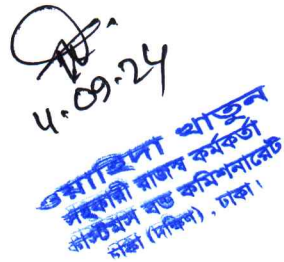 4.09.24
ওয়াহিদা খাতুন
সহকারী রাজস্ব কর্মকর্তা
কাস্টমস বন্ড কমিশনারেট
ঢাকা (দক্ষিণ), ঢাকা।